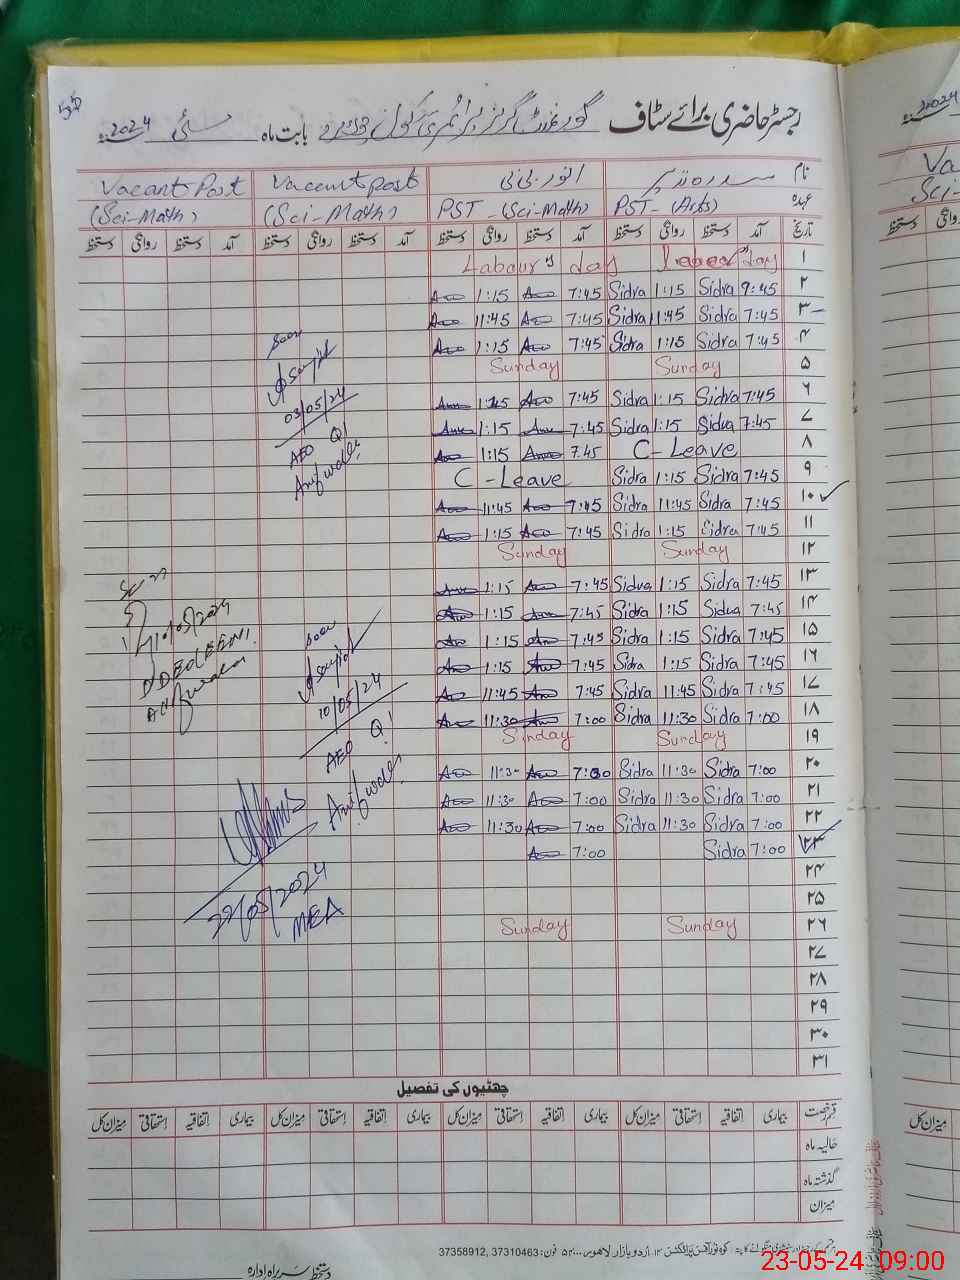 رجسٹر حاضری برائے سٹاف گورنمنٹ گرلز پرائمری سکول بابت ماہ مئی 2024ء
نام سدرہ نذیر انور بی بی Vacant post Vacant Post
عہدہ PST-(Arts) PST-(Sci-Math) (Sci-Math) (Sci-Math)
تاریخ آمد دستخط روانگی دستخط آمد دستخط روانگی دستخط آمد دستخط روانگی دستخط آمد دستخط روانگی دستخط
Labour day Labour day ۱
1:15 7:45 Sidra 1:15 Sidra 7:45 ۲
11:45 7:45 Sidra 11:45 Sidra 7:45 ۳
1:15 7:45 Sidra 1:15 Sidra 7:45 ۴
Sunday Sunday ۵
1:15 7:45 Sidra 1:15 Sidra 7:45 ۶
1:15 7:45 Sidra 1:15 Sidra 7:45 ۷
1:15 7:45 C-Leave ۸
C-Leave Sidra 1:15 Sidra 7:45 ۹
11:45 7:45 Sidra 11:45 Sidra 7:45 ۱۰
1:15 7:45 Sidra 1:15 Sidra 7:45 ۱۱
Sunday Sunday ۱۲
1:15 7:45 Sidra 1:15 Sidra 7:45 ۱۳
1:15 7:45 Sidra 1:15 Sidra 7:45 ۱۴
1:15 7:45 Sidra 1:15 Sidra 7:45 ۱۵
1:15 7:45 Sidra 1:15 Sidra 7:45 ۱۶
11:45 7:45 Sidra 11:45 Sidra 7:45 ۱۷
11:30 7:00 Sidra 11:30 Sidra 7:00 ۱۸
Sunday Sunday ۱۹
11:30 7:00 Sidra 11:30 Sidra 7:00 ۲۰
11:30 7:00 Sidra 11:30 Sidra 7:00 ۲۱
11:30 7:00 Sidra 11:30 Sidra 7:00 ۲۲
7:00 Sidra 7:00 ۲۳
۲۴
۲۵
Sunday Sunday ۲۶
۲۷
۲۸
۲۹
۳۰
۳۱
seen
03/05/24
AEO Q!
Arifwala
10/05/2024
DDEO(EEM)
Arifwala
seen
10/05/24
AEO Q!
Arifwala
22/05/2024
MEA
چھٹیوں کی تفصیل
قسم رخصت بیماری اتفاقیہ استحقاقی میزان کل بیماری اتفاقیہ استحقاقی میزان کل بیماری اتفاقیہ استحقاقی میزان کل بیماری اتفاقیہ استحقاقی میزان کل
حالیہ ماہ
گذشتہ ماہ
میزان
اردو بازار لاہور فون: 37310463, 37358912
دستخط سربراہ ادارہ
23-05-24 09:00